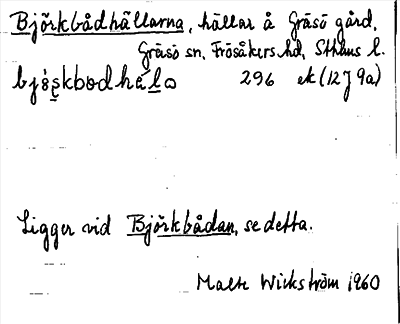 Björkbådhällarna, hällar å Gräsö gård,
Gräsö sn, Frösåkers hd, Sthlms l.
296 ek (12J9a)
Ligger vid Björkbådan, se detta.
Malte Wickström 1960